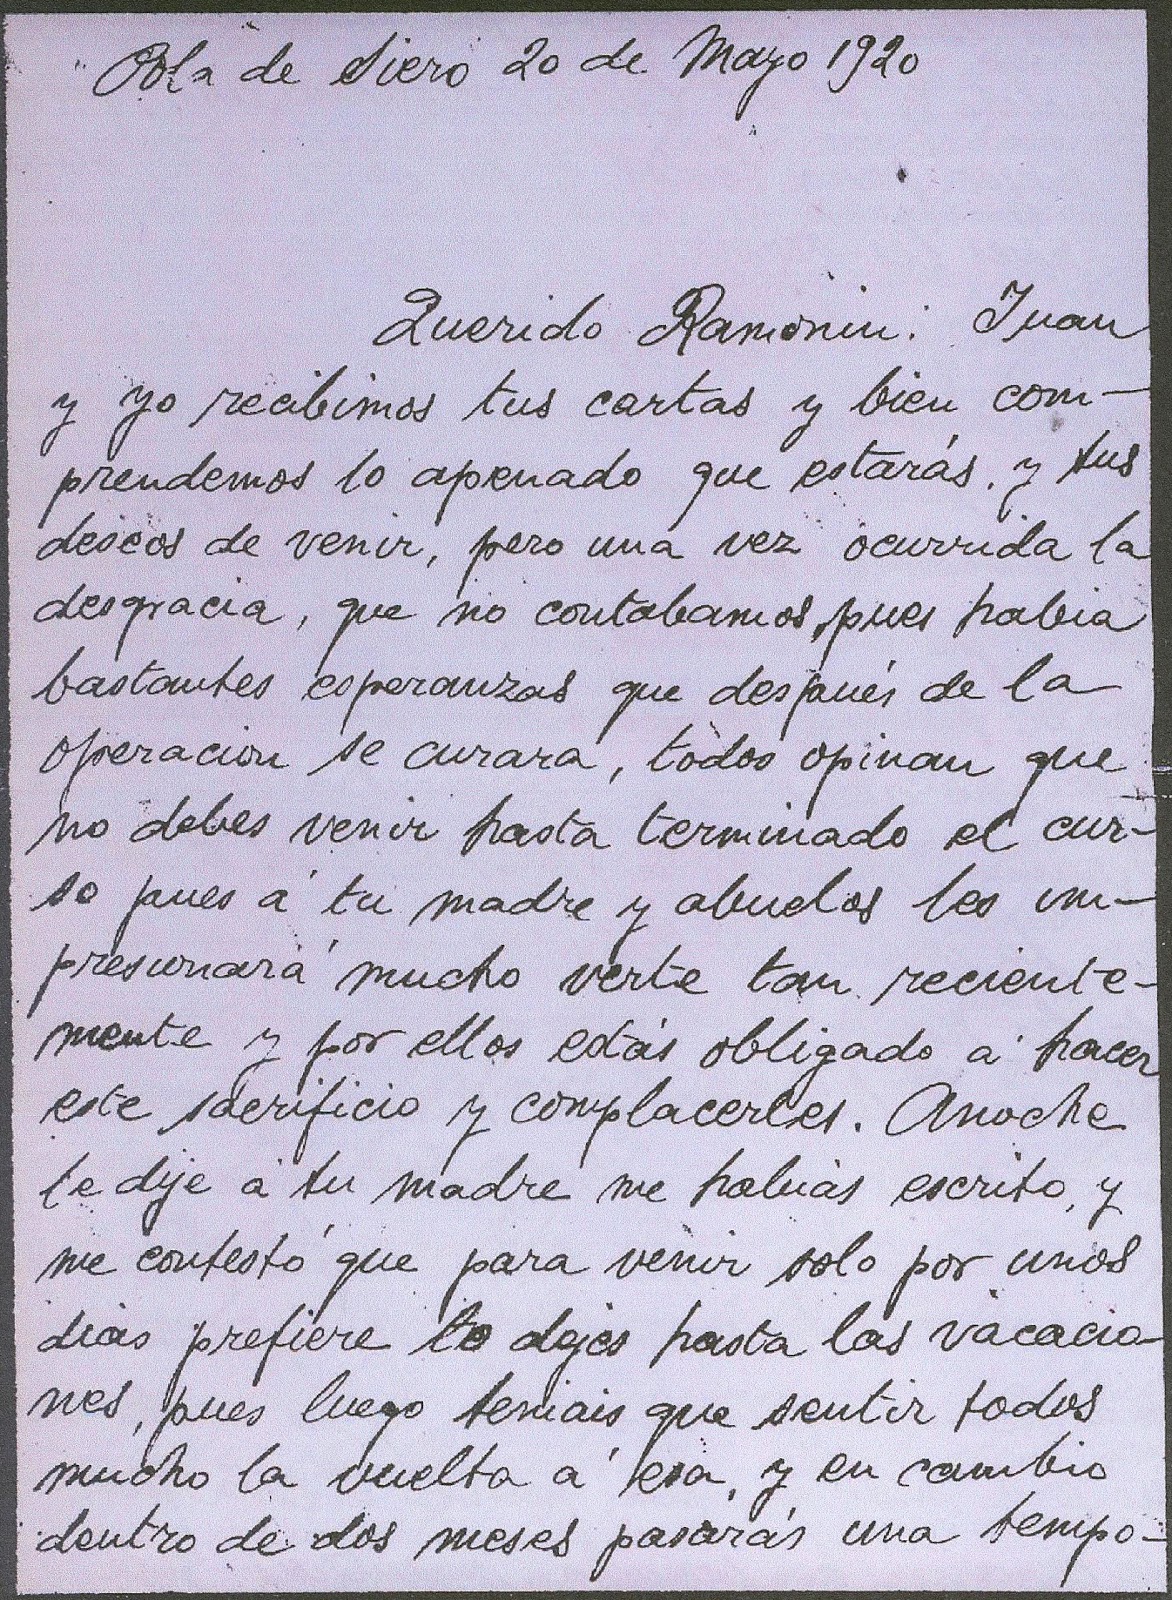 Pola de Siero 20 de Mayo 1920
Querido Ramonin: Juan
y yo recibimos tus cartas y bien com-
prendemos lo apenado que estarás, y tus
deseos de venir, pero una vez ocurrida la
desgracia, que no contabamos, pues habia
bastantes esperanzas que después de la
operacion se curara, todos opinan que
no debes venir hasta terminado el cur-
so pues á tu madre y abuelos les im-
presionará mucho verte tan reciente-
mente y por ellos estás obligado á hacer
este sacrificio y complacerles. Anoche
le dije á tu madre me habiás escrito, y
me contestó que para venir solo por unos
dias prefiere lo dejes hasta las vacacio-
nes, pues luego teniais que sentir todos
mucho la vuelta á esa, y en cambio
dentro de dos meses pasarás una tempo-